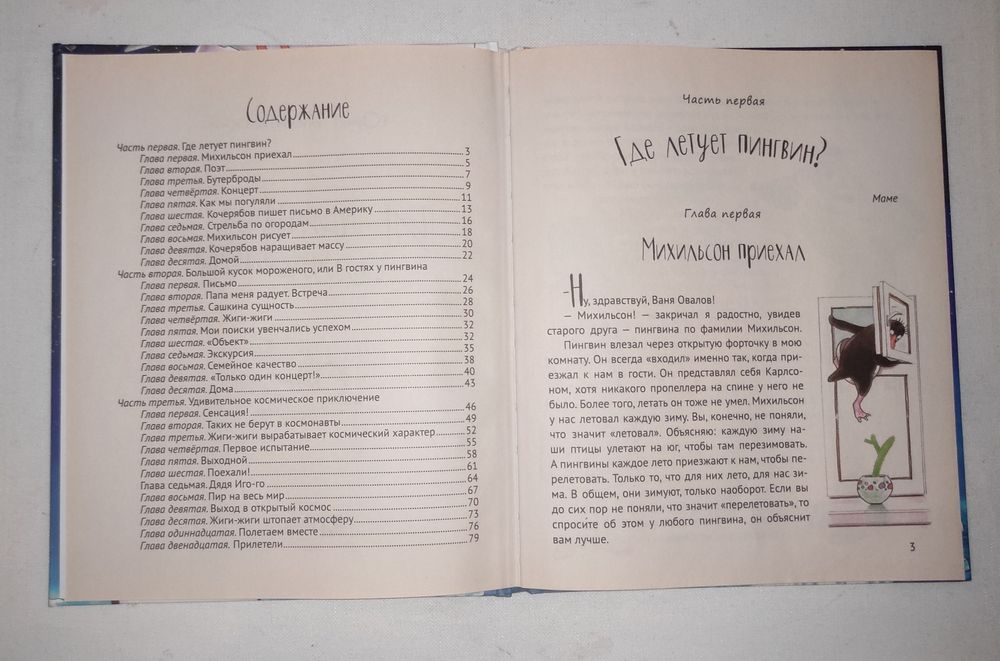 Содержание
Часть первая. Где летует пингвин?
Глава первая. Михильсон приехал 3
Глава вторая. Поэт 5
Глава третья. Бутерброды 7
Глава четвёртая. Концерт 9
Глава пятая. Как мы погуляли 11
Глава шестая. Кочерябов пишет письмо в Америку 13
Глава седьмая. Стрельба по огородам 16
Глава восьмая. Михильсон рисует 18
Глава девятая. Кочерябов наращивает массу 20
Глава десятая. Домой 22
Часть вторая. Большой кусок мороженого, или В гостях у пингвина
Глава первая. Письмо 24
Глава вторая. Папа меня радует. Встреча 26
Глава третья. Сашкина сущность 28
Глава четвёртая. Жиги-жиги 30
Глава пятая. Мои поиски увенчались успехом 32
Глава шестая. «Объект» 32
Глава седьмая. Экскурсия 35
Глава восьмая. Семейное качество 38
Глава девятая. «Только один концерт!» 40
Глава десятая. Дома 43
Часть третья. Удивительное космическое приключение
Глава первая. Сенсация! 46
Глава вторая. Таких не берут в космонавты 49
Глава третья. Жиги-жиги вырабатывает космический характер 52
Глава четвёртая. Первое испытание 55
Глава пятая. Выходной 58
Глава шестая. Поехали! 61
Глава седьмая. Дядя Иго-го 64
Глава восьмая. Пир на весь мир 67
Глава девятая. Выход в открытый космос 70
Глава десятая. Жиги-жиги штопает атмосферу 73
Глава одиннадцатая. Полетаем вместе 76
Глава двенадцатая. Прилетели 79
Часть первая
Где летует пингвин?
Маме
Глава первая
Михильсон приехал
-Ну, здравствуй, Ваня Овалов!
— Михильсон! — закричал я радостно, увидев
старого друга — пингвина по фамилии Михильсон.
Пингвин влезал через открытую форточку в мою
комнату. Он всегда «входил» именно так, когда при-
езжал к нам в гости. Он представлял себя Карлсо-
ном, хотя никакого пропеллера на спине у него не
было. Более того, летать он тоже не умел. Михильсон
у нас летовал каждую зиму. Вы, конечно, не поняли,
что значит «летовал». Объясняю: каждую зиму на-
ши птицы улетают на юг, чтобы там перезимовать.
А пингвины каждое лето приезжают к нам, чтобы пе-
релетовать. Только то, что для них лето, для нас зи-
ма. В общем, они зимуют, только наоборот. Если вы
до сих пор не поняли, что значит «перелетовать», то
спроси́те об этом у любого пингвина, он объяснит
вам лучше.
3